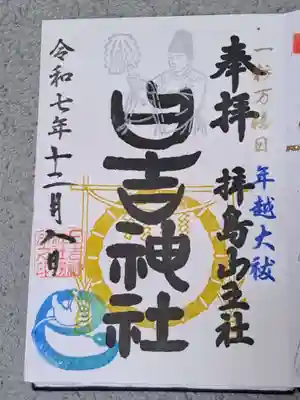 一粒万倍日
奉拝
年越大祓
拝島山王社
日吉神社
令和七年十二月八日